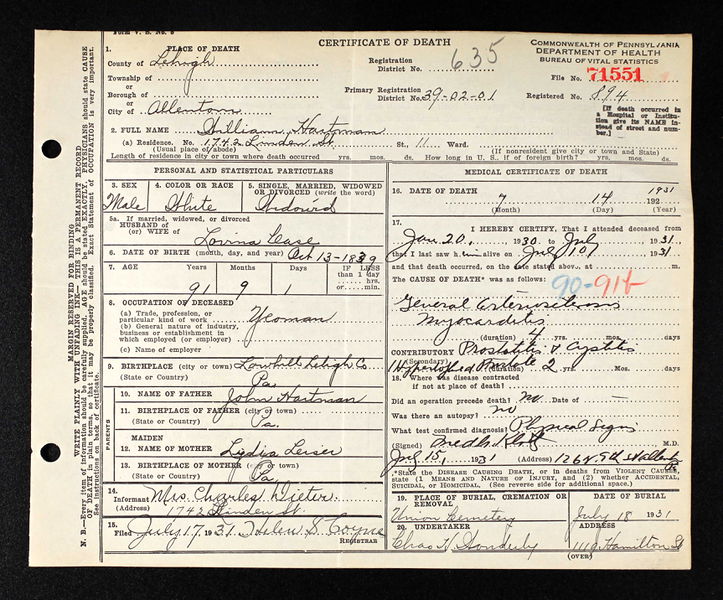 Form V. S. No. 5
CERTIFICATE OF DEATH
COMMONWEALTH OF PENNSYLVANIA
DEPARTMENT OF HEALTH
BUREAU OF VITAL STATISTICS
1. PLACE OF DEATH
County of Lehigh
Township of
or
Borough of
or
City of Allentown
Registration District No. 635
Primary Registration District No. 39-02-01
File No. 71551
Registered No. 894
[If death occurred in a Hospital or Institution give its NAME instead of street and number.]
2. FULL NAME William Hartman
(a) Residence. No. 1742 Linden St. St., 11 Ward.
(Usual place of abode) (If nonresident give city or town and State)
Length of residence in city or town where death occurred yrs. mos. ds. How long in U. S., if of foreign birth? yrs. mos. ds.
PERSONAL AND STATISTICAL PARTICULARS
3. SEX Male
4. COLOR OR RACE White
5. SINGLE, MARRIED, WIDOWED OR DIVORCED (write the word) Widowed
5a. If married, widowed, or divorced
HUSBAND of
(or) WIFE of Lovina
6. DATE OF BIRTH (month, day, and year) Oct 13-1839
7. AGE Years 91 Months 9 Days 1 IF LESS than 1 day hrs. or min.
8. OCCUPATION OF DECEASED
(a) Trade, profession, or particular kind of work Yeoman
(b) General nature of industry, business or establishment in which employed (or employer)
(c) Name of employer
9. BIRTHPLACE (city or town) Lowhill Lehigh Co
(State or Country) Pa.
PARENTS
10. NAME OF FATHER John Hartman
11. BIRTHPLACE OF FATHER (city or town)
(State or Country) Pa.
12. MAIDEN NAME OF MOTHER Lydia
13. BIRTHPLACE OF MOTHER (city or town)
(State or Country) Pa
14. Informant Mrs Charles Dieter
(Address) 1742 Linden St.
15. Filed July 17 1931 Helen S. Coyne
REGISTRAR
MEDICAL CERTIFICATE OF DEATH
16. DATE OF DEATH 7 14 1931
(Month) (Day) 192
17. I HEREBY CERTIFY, That I attended deceased from
Jan 20, 1930 to July 1931
that I last saw him alive on July 10 1931
and that death occurred, on the date stated above, at m.
The CAUSE OF DEATH* was as follows: 90-91b
General Arteriosclerosis
Myocarditis
(duration) 4 yrs. mos. days
CONTRIBUTORY Prostatitis & Cystitis
(Secondary)
Hypertrophied Prostate (duration) 2 Yrs. Mos. days
18. Where was disease contracted
if not at place of death?
Did an operation precede death? no Date of —
Was there an autopsy? no
What test confirmed diagnosis? Physical Signs
(Signed) M.D.
July 15, 1931 (Address)
*State the DISEASE CAUSING DEATH, or in deaths from VIOLENT CAUSES, state (1) MEANS AND NATURE OF INJURY, and (2) whether ACCIDENTAL, SUICIDAL, or HOMICIDAL. (See reverse side for additional space.)
19. PLACE OF BURIAL, CREMATION OR REMOVAL Union Cemetery
DATE OF BURIAL July 18 1931
20. UNDERTAKER Chas H.
ADDRESS 1119 Hamilton St
(OVER)
MARGIN RESERVED FOR BINDING
WRITE PLAINLY WITH UNFADING INK—THIS IS A PERMANENT RECORD
N. B.—Every item of information should be carefully supplied. AGE should be stated EXACTLY. PHYSICIANS should state CAUSE OF DEATH in plain terms, so that it may be properly classified. Exact Statement of OCCUPATION is very important. See instructions on back of certificate.